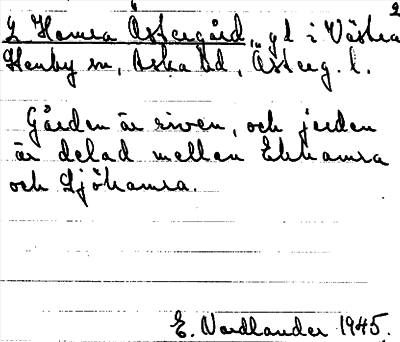 2
L Hamra Östergård, gd i Västra
Stenby sn, Aska hd, Österg. l.
Gården är riven, och jorden
är delad mellan Ekhamra
och Sjöhamra.
E. Nordlander 1945.